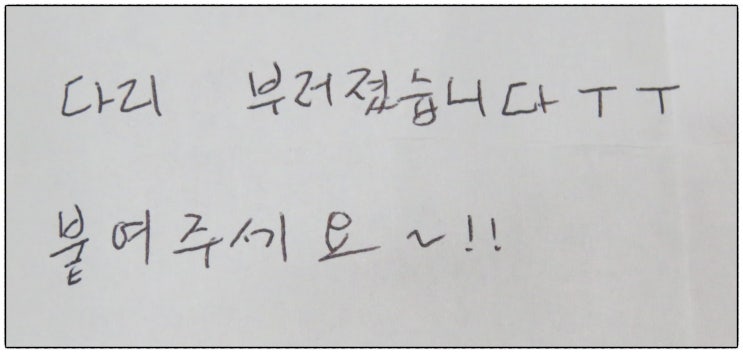 다리 부러졌습니다ㅜㅜ
붙여주세요~!!